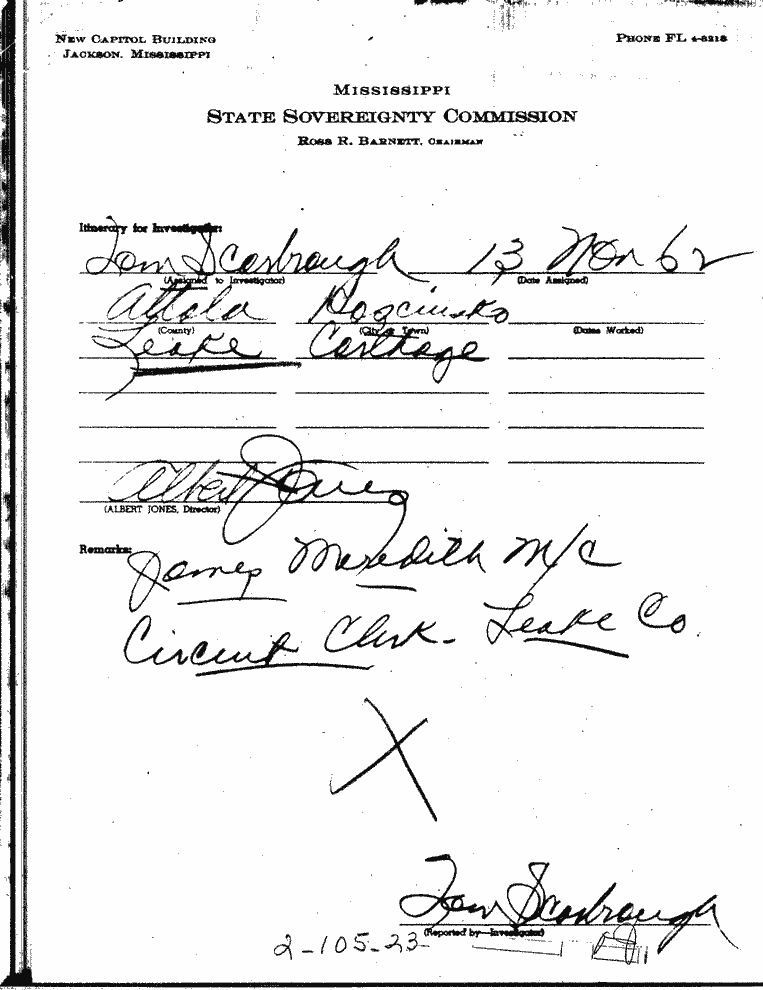 NEW CAPITOL BUILDING
JACKSON, MISSISSIPPI
PHONE FL 4-8218
MISSISSIPPI
STATE SOVEREIGNTY COMMISSION
ROSS R. BARNETT, CHAIRMAN
Itinerary for Investigator:
Tom Scarbrough 13 Nov 62
(Assigned to Investigator) (Date Assigned)
Attala Kozciusko
(County) (City or Town) (Dates Worked)
Leake Carthage
Albert Jones
(ALBERT JONES, Director)
Remarks:
James Meredith M/C
Circuit Clerk - Leake Co.
X
Tom Scarbrough
(Reported by Investigator)
2-105-23